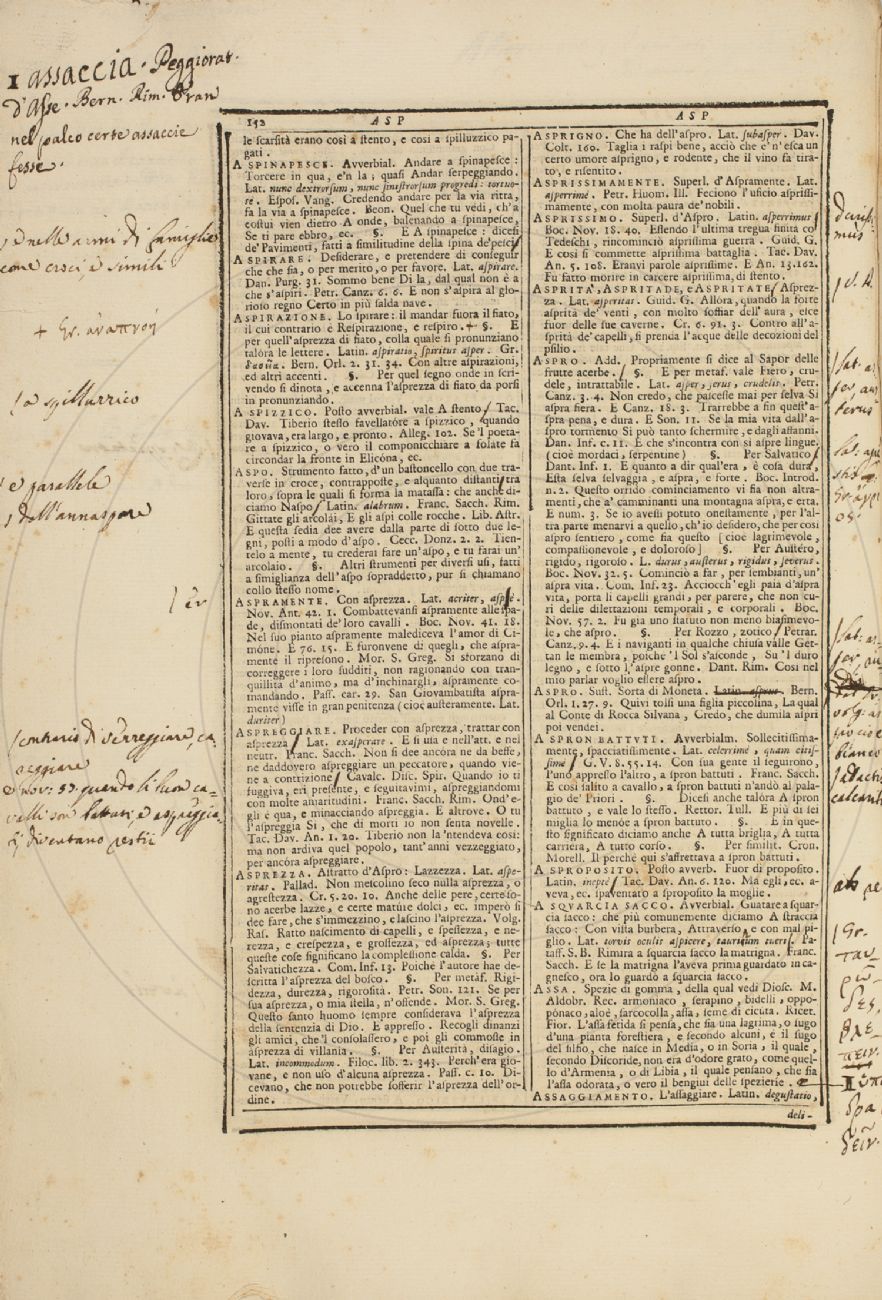 I assaccia. Peggiorat.
d'Asse. Bern. Rim. Eran
nel palco certe assaccie
fesse.
come croci, e simili
+ Gr. ἀναπνοή
e parallele
dell'annaspare
contrario di verreggiare,
e Nov. 53. quando li lor ca-
valli son battuti, e aspreggia
ti diventano restii
152 ASP
le scarsità erano così a stento, e così a spilluzzico pa-
gati.
A SPINAPESCE. Avverbial. Andare a spinapesce:
Torcere in qua, e'n là; quasi Andar serpeggiando.
Lat. nunc dextrorsum, nunc sinistrorsum progredi: tortuo-
se. Espos. Vang. Credendo andare per la via ritta,
fa la via a spinapesce. Bcon. Quel che tu vedi, ch'a
costui vien dietro A onde, balenando a spinapesce,
Se ti pare ebbro, ec. §. E A spinapesce: dicesi
de' Pavimenti, fatti a similitudine della spina de'pesci
ASPIRARE. Desiderare, e pretendere di conseguir
che che sia, o per merito, o per favore. Lat. aspirare.
Dan. Purg. 31. Sommo bene Di là, dal qual non è a
che s'aspiri. Petr. Canz. 6. 6. E non s'aspira al glo-
rioso regno Certo in più salda nave.
ASPIRAZIONE. Lo spirare: il mandar fuora il fiato,
il cui contrario è Respirazione, e respiro. + §. E
per quell'asprezza di fiato, colla quale si pronunziano
talóra le lettere. Latin. aspiratio, spiritus asper. Gr.
δασεῖα. Bern. Orl. 2. 31. 34. Con altre aspirazioni,
ed altri accenti. §. Per quel segno onde in scri-
vendo si dinota, e accenna l'asprezza di fiato da porsi
in pronunziando.
A SPIZZICO. Posto avverbial. vale A stento Tac.
Dav. Tiberio stesso favellatóre a spizzico, quando
giovava, era largo, e pronto. Alleg. 102. Se 'l poeta-
re a spizzico, o vero il componicchiare a folate fa
circondar la fronte in Elicóna, ec.
ASPO. Strumento fatto, d'un bastoncello con due tra-
verse in croce, contrapposte, e alquanto distanti tra
loro, sopra le quali si forma la matassa: che anche di-
ciamo Naspo Latin. alabrum. Franc. Sacch. Rim.
Gittate gli arcolai, E gli aspi colle rocche. Lib. Astr.
E questa sedia dee avere dalla parte di sotto due le-
gni, posti a modo d'aspo. Cecc. Donz. 2. 2. Tien-
telo a mente, tu crederai fare un'aspo, e tu farai un'
arcolaio. §. Altri strumenti per diversi usi, fatti
a simiglianza dell'aspo sopraddetto, pur si chiamano
collo stesso nome.
ASPRAMENTE. Con asprezza. Lat. acriter, aspre.
Nov. Ant. 42. 1. Combattevansi aspramente alle spa-
de, dismontati de' loro cavalli. Boc. Nov. 41. 18.
Nel suo pianto aspramente malediceva l'amor di Ci-
móne. E 76. 15. E furonvene di quegli, che aspra-
mente il ripresono. Mor. S. Greg. Si sforzano di
correggere i loro sudditi, non ragionando con tran-
quillità d'animo, ma d'inchinargli, aspramente co-
mandando. Pass. car. 29. San Giovambatista aspra-
mente visse in gran penitenza (cioè austeramente. Lat.
duriter)
ASPREGGIARE. Proceder con asprezza, trattar con
asprezza Lat. exasperare. E si usa e nell'att. e nel
neutr. Franc. Sacch. Non si dee ancóra ne da beffe,
ne daddovero aspreggiare un peccatore, quando vie-
ne a contrizione Cavalc. Disc. Spir. Quando io ti
fuggiva, eri presente, e seguitavimi, aspreggiandomi
con molte amaritudini. Franc. Sacch. Rim. Ond'e-
gli è qua, e minacciando aspreggia. E altrove. O tu
l'aspreggia Sì, che di morti io non senta novelle.
Tac. Dav. An. 1. 20. Tiberio non la 'ntendeva così:
ma non ardiva quel popolo, tant'anni vezzeggiato,
per ancóra aspreggiare.
ASPREZZA. Astratto d'Aspro: Lazzezza. Lat. aspe-
ritas. Pallad. Non mescolino seco nulla asprezza, o
agrestezza. Cr. 5. 20. 10. Anche delle pere, certe so-
no acerbe lazze, e certe matúre dolci, ec. imperò si
dee fare, che s'immezzino, e lascino l'asprezza. Volg.
Ras. Ratto nascimento di capelli, e spessezza, e ne-
rezza, e crespezza, e grossezza, ed asprezza; tutte
queste cose significano la complessione calda. §. Per
Salvatichezza. Com. Inf. 13. Poichè l'autore hae de-
scritta l'asprezza del bosco. §. Per metáf. Rigi-
dezza, durezza, rigorosità. Petr. Son. 121. Se per
sua asprezza, o mia stella, n'offende. Mor. S. Greg.
Questo santo huomo sempre considerava l'asprezza
della sentenzia di Dio. E appresso. Recogli dinanzi
gli amici, che 'l consolassero, e poi gli commosse in
asprezza di villania. §. Per Austerità, disagio.
Lat. incommodum. Filoc. lib. 2. 343. Perch'era gio-
vane, e non uso d'alcuna asprezza. Pass. c. 10. Di-
cevano, che non potrebbe sofferir l'asprezza dell'or-
dine.
ASP
ASPRIGNO. Che ha dell'aspro. Lat. subasper. Dav.
Colt. 160. Taglia i raspi bene, acciò che e' n'esca un
certo umore asprigno, e rodente, che il vino fa tira-
to, e risentito.
ASPRISSIMAMENTE. Superl. d'Aspramente. Lat.
asperrimè. Petr. Huom. Ill. Feciono l'uficio asprissi-
mamente, con molta paura de'nobili.
ASPRISSIMO. Superl. d'Aspro. Latin. asperrimus
Boc. Nov. 18. 40. Essendo l'ultima tregua finita co'
Tedeschi, rincominciò asprissima guerra. Guid. G.
E così si commette asprissima battaglia. Tac. Dav.
An. 5. 108. Eranvi parole asprissime. E An. 13. 162.
Fu fatto morire in carcere asprissima, di stento.
ASPRITÀ, ASPRITADE, E ASPRITATE Asprez-
za. Lat. asperitas. Guid. G. Allóra, quando la forte
asprità de' venti, con molto soffiar dell'aura, esce
fuor delle sue caverne. Cr. 6. 91. 3. Contro all'a-
sprità de'capelli, si prenda l'acque delle decozioni del
psilio.
ASPRO. Add. Propriamente si dice al Sapor delle
frutte acerbe. §. E per metaf. vale Fiero, cru-
dele, intrattabile. Lat. asper, ferus, crudelis. Petr.
Canz. 3. 4. Non credo, che pascesse mai per selva Sì
aspra fiera. E Canz. 18. 3. Trarrebbe a fin quest'a-
spra pena, e dura. E Son. 11. Se la mia vita dall'a-
spro tormento Si può tanto schermire, e dagli affanni.
Dan. Inf. c. 11. E che s'incontra con sì aspre lingue.
(cioè mordaci, serpentine) §. Per Salvatico
Dant. Inf. 1. E quanto a dir qual'era, è cosa dura,
Esta selva selvaggia, e aspra, e forte. Boc. Introd.
n. 2. Questo orrido cominciamento vi fia non altra-
menti, che a' camminanti una montagna aspra, e erta.
E num. 3. Se io avessi potuto onestamente, per l'al-
tra parte menarvi a quello, ch'io desidero, che per così
aspro sentiero, come fia questo [cioè lagrimevole,
compassionevole, e doloroso] §. Per Austéro,
rigido, rigoroso. L. durus, austerus, rigidus, severus.
Boc. Nov. 32. 5. Cominciò a far, per sembianti, un'
aspra vita. Com. Inf. 23. Acciocch' egli paia d'aspra
vita, porta li capelli grandi, per parere, che non cu-
ri delle dilettazioni temporali, e corporali. Boc.
Nov. 57. 2. Fu gia uno statuto non meno biasimevo-
le, che aspro. §. Per Rozzo, zotico Petrar.
Canz. 9. 4. E i naviganti in qualche chiusa valle Get-
tan le membra, poiche 'l Sol s'asconde, Su 'l duro
legno, e sotto l'aspre gonne. Dant. Rim. Così nel
mio parlar voglio essere aspro.
ASPRO. Sust. Sorta di Moneta. Latin. asprus. Bern.
Orl. 1. 27. 9. Quivi tolsi una figlia piccolina, La qual
al Conte di Rocca Silvana, Credo, che dumila aspri
poi vendei.
A SPRON BATTUTI. Avverbialm. Sollecitissima-
mente, spacciatissimente. Lat. celerrimè, quam citis-
simè G. V. 8. 55. 14. Con sua gente il seguirono,
l'uno appresso l'altro, a spron battuti. Franc. Sacch.
E così salito a cavallo, a spron battuti n'andò al pala-
gio de' Priori. §. Dicesi anche talóra A spron
battuto, e vale lo stesso. Rettor. Tull. E più di sei
miglia lo menóe a spron battuto. §. E in que-
sto significato diciamo anche A tutta briglia, A tutta
carriera, A tutto corso. §. Per similit. Cron.
Morell. Il perchè qui s'affrettava a spron battuti.
A SPROPOSITO. Posto avverb. Fuor di proposito.
Latin. ineptè Tac. Dav. An. 6. 120. Ma egli, ec. a-
veva, ec. ispaventato a sproposito la moglie.
A SQVARCIA SACCO. Avverbial. Guatare a squar-
cia sacco: che più comunemente diciamo A straccia
sacco: Con vista burbera, Attraverso, e con mal pi-
glio. Lat. torvis oculis aspicere, taurinum tueri. Pa-
taff. S. B. Rimira a squarcia sacco la matrigna. Franc.
Sacch. E se la matrigna l'aveva prima guardato in ca-
gnesco, ora lo guardò a squarcia sacco.
ASSA. Spezie di gomma, della qual vedi Diosc. M.
Aldobr. Rec. armoniaco, serapino, bidelli, oppo-
pónaco, aloè, sarcocolla, assa, seme di cicúta. Ricet.
Fior. L'assa fetida si pensa, che sia una lagrima, o sugo
d'una pianta forestiera, e secondo alcuni, è il sugo
del silfio, che nasce in Media, o in Soria, il quale,
secondo Discoride, non era d'odore grato, come quel-
lo d'Armenia, o di Libia, il quale pensano, che sia
l'assa odorata, o vero il bengiuì delle spezierie.
ASSAGGIAMENTO. L'assaggiare. Latin. degustatio,
deli-